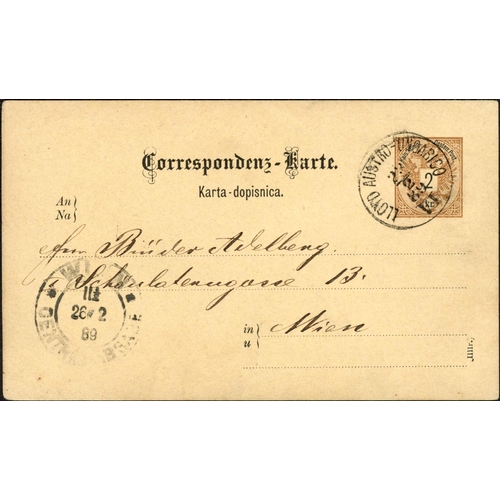 Correspondenz-Karte.
Karta-dopisnica.
LLOYD AUSTRO-UNGARICO
2
An
Na
Brüder Adelberg
Schönlaterngasse 13.
in
u
Wien
(Illir.)
WIEN
III
26 2
89